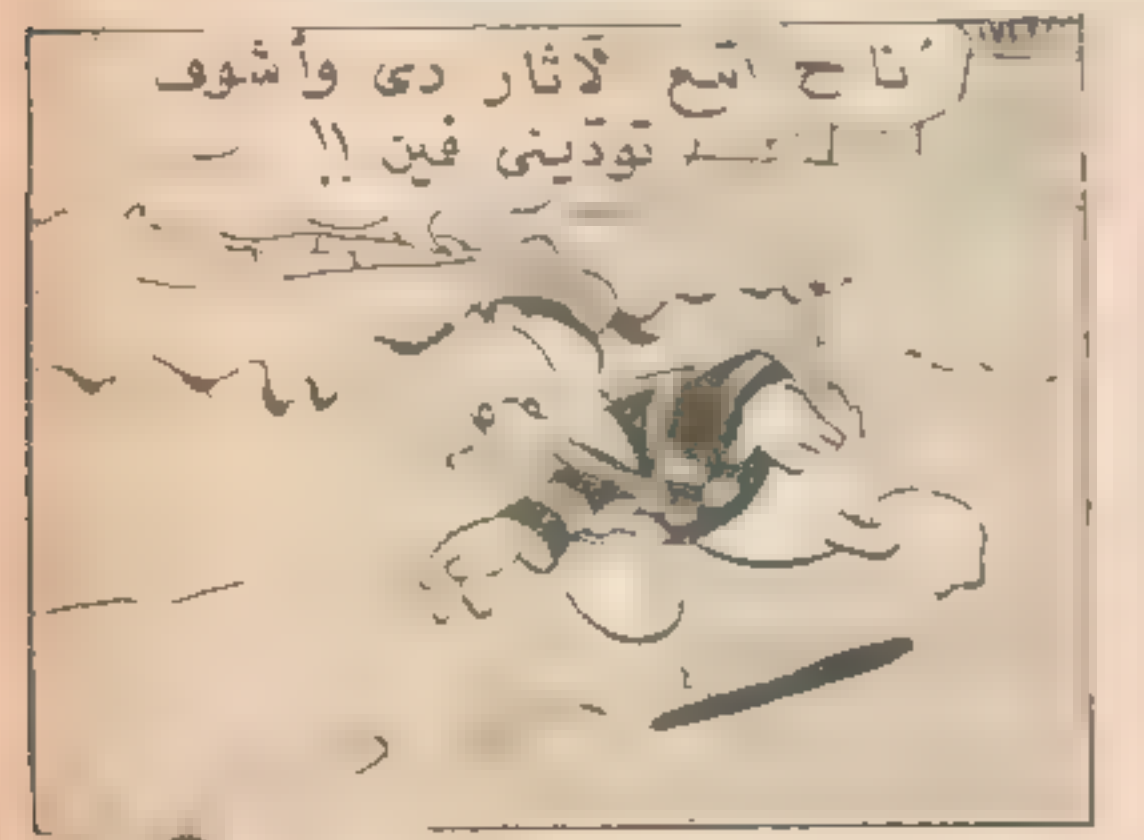 أنا ح اتبع الآثار دى وأشوف
تودّينى فين !!